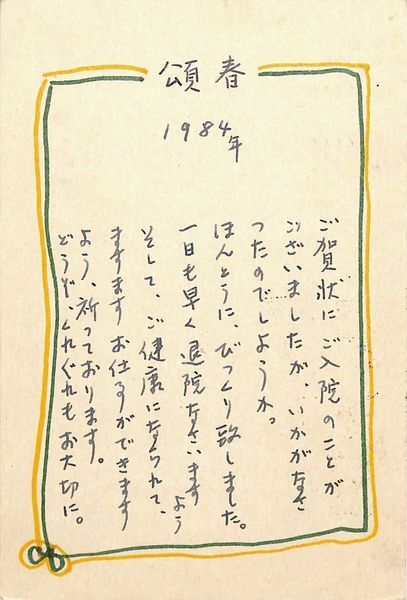 頌春
1984年
ご賀状にご入院のことが
ございましたが、いかがなさ
つたのでしようか。
ほんとうに、びつくり致しました。
一日も早く退院なさいますよう
そして、ご健康になられて、
ますますお仕事ができます
よう、祈っております。
どうぞ、くれぐれもお大切に。